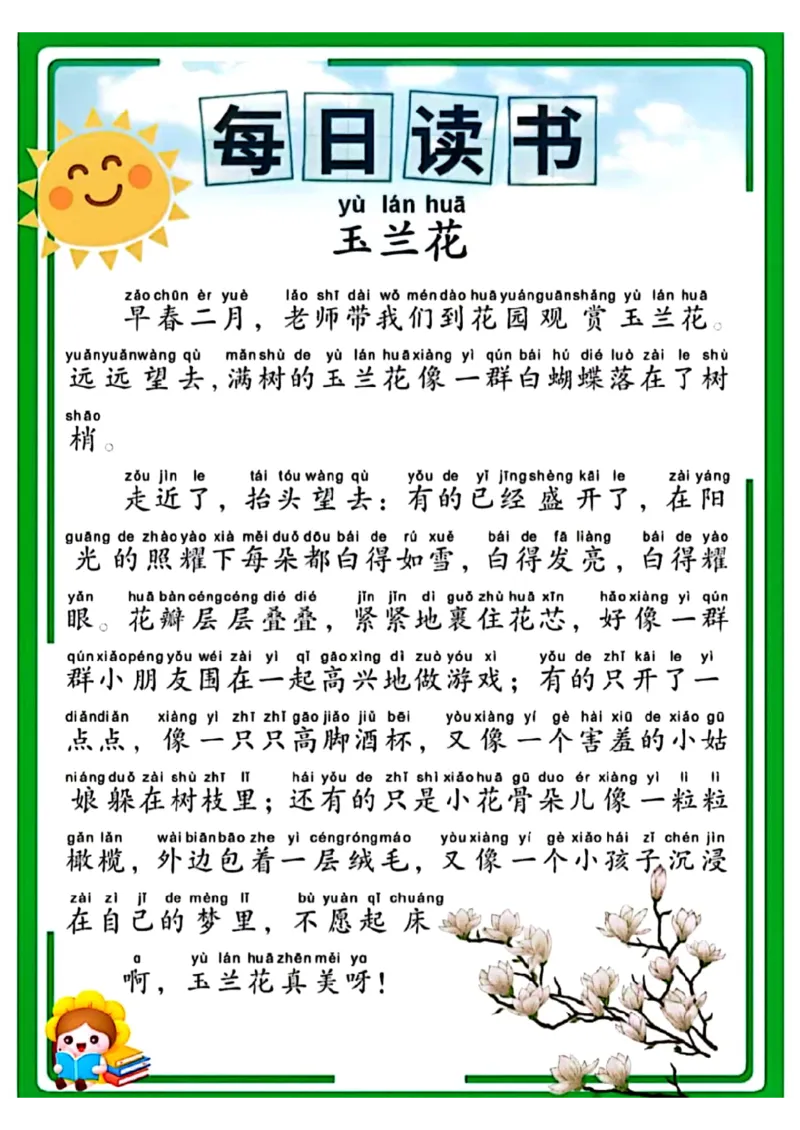 每日读书
yù lán huā
玉兰花
zǎo chūn èr yuè lǎo shī dài wǒ mén dào huā yuán guān shǎng yù lán huā
早春二月，老师带我们到花园观赏玉兰花。
yuǎn yuǎn wàng qù mǎn shù de yù lán huā xiàng yì qún bái hú dié luò zài le shù
远远望去，满树的玉兰花像一群白蝴蝶落在了树
shāo
梢。
zǒu jìn le tái tóu wàng qù yǒu de yǐ jīng shèng kāi le zài yáng
走近了，抬头望去：有的已经盛开了，在阳
guāng de zhào yào xià měi duǒ dōu bái de rú xuě bái de fā liàng bái de yào
光的照耀下每朵都白得如雪，白得发亮，白得耀
yǎn huā bàn céng céng dié dié jǐn jǐn dì guǒ zhù huā xīn hǎo xiàng yì qún
眼。花瓣层层叠叠，紧紧地裹住花芯，好像一群
qún xiǎo péng yǒu wéi zài yì qǐ gāo xìng dì zuò yóu xì yǒu de zhǐ kāi le yì
群小朋友围在一起高兴地做游戏；有的只开了一
diǎn diǎn xiàng yì zhī zhǐ gāo jiǎo jiǔ bēi yòu xiàng yí gè hài xiū de xiǎo gū
点点，像一只只高脚酒杯，又像一个害羞的小姑
niáng duǒ zài shù zhī lǐ hái yǒu de zhǐ shì xiǎo huā gū duo ér xiàng yì lì lì
娘躲在树枝里；还有的只是小花骨朵儿像一粒粒
gǎn lǎn wài biān bāo zhe yì céng róng máo yòu xiàng yí gè xiǎo hái zǐ chén jìn
橄榄，外边包着一层绒毛，又像一个小孩子沉浸
zài zì jǐ de mèng lǐ bù yuàn qǐ chuáng
在自己的梦里，不愿起床
a yù lán huā zhēn měi ya
啊，玉兰花真美呀！